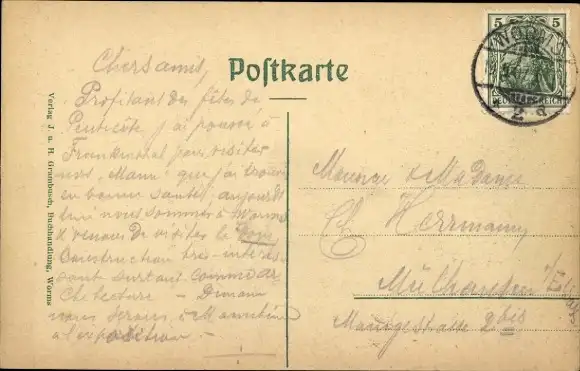 Postkarte
Chers amis,
Profitant des fêtes de
Pentecôte j'ai poussé à
Frankenthal pour visiter
nos Mann que j'ai trouvé
en bonne santé, aujourd'
hui nous sommes à Worms
& venons de visiter le Dom
Construction très interes
sant surtout comme ar
chitecture – Demain
nous serons à Mannheim
à l'exposition
Monsieur & Madame
Ch Herrmann
Mülhausen i/Els
2 bis
Verlag J. u. H. Grambusch, Buchhandlung, Worms
5 5
DEUTSCHES REICH
WORMS